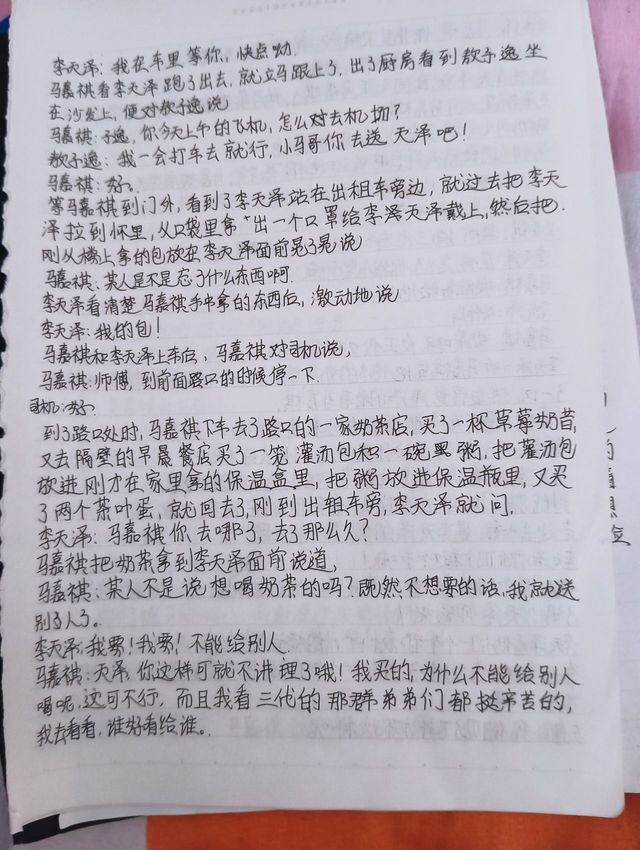 李天泽：我在车里等你，快点呦.
马嘉祺看李天泽跑了出去，就立马跟上了，出了厨房看到敖子逸坐
在沙发上，便对敖子逸说
马嘉祺：子逸，你今天上午的飞机，怎么对去机场？
敖子逸：我一会打车去就行，小马哥你去送天泽吧！
马嘉祺：好.
等马嘉祺到门外，看到了李天泽站在出租车旁边，就过去把李天
泽拉到怀里，从口袋里拿出一个口罩给李天泽戴上，然后把.
刚从楼上拿的包放在李天泽面前晃了晃说
马嘉祺：某人是不是忘了什么东西啊.
李天泽看清楚马嘉祺手中拿的东西后，激动地说
李天泽：我的包！
马嘉祺和李天泽上车后，马嘉祺对司机说，
马嘉祺：师傅，到前面路口的时候停一下.
司机：好.
到了路口处时，马嘉祺下车去了路口的一家奶茶店，买了一杯草莓奶昔，
又去隔壁的早晨餐店买了一笼灌汤包和一碗黑粥，把灌汤包
放进刚才在家里拿的保温盒里，把粥放进保温瓶里，又买
了两个茶叶蛋，就回去了，刚到出租车旁，李天泽就问.
李天泽：马嘉祺你去哪了，去了那么久？
马嘉祺把奶茶拿到李天泽面前说道，
马嘉祺：某人不是说想喝奶茶的吗？既然不想要的话，我就送
别了人了。
李天泽：我要！我要！不能给别人.
马嘉祺：天泽，你这样可就不讲理了哦！我买的，为什么不能给别人
喝呢，这可不行，而且我看三代的那群弟弟们都挺辛苦的，
我去看看，谁好看给谁。